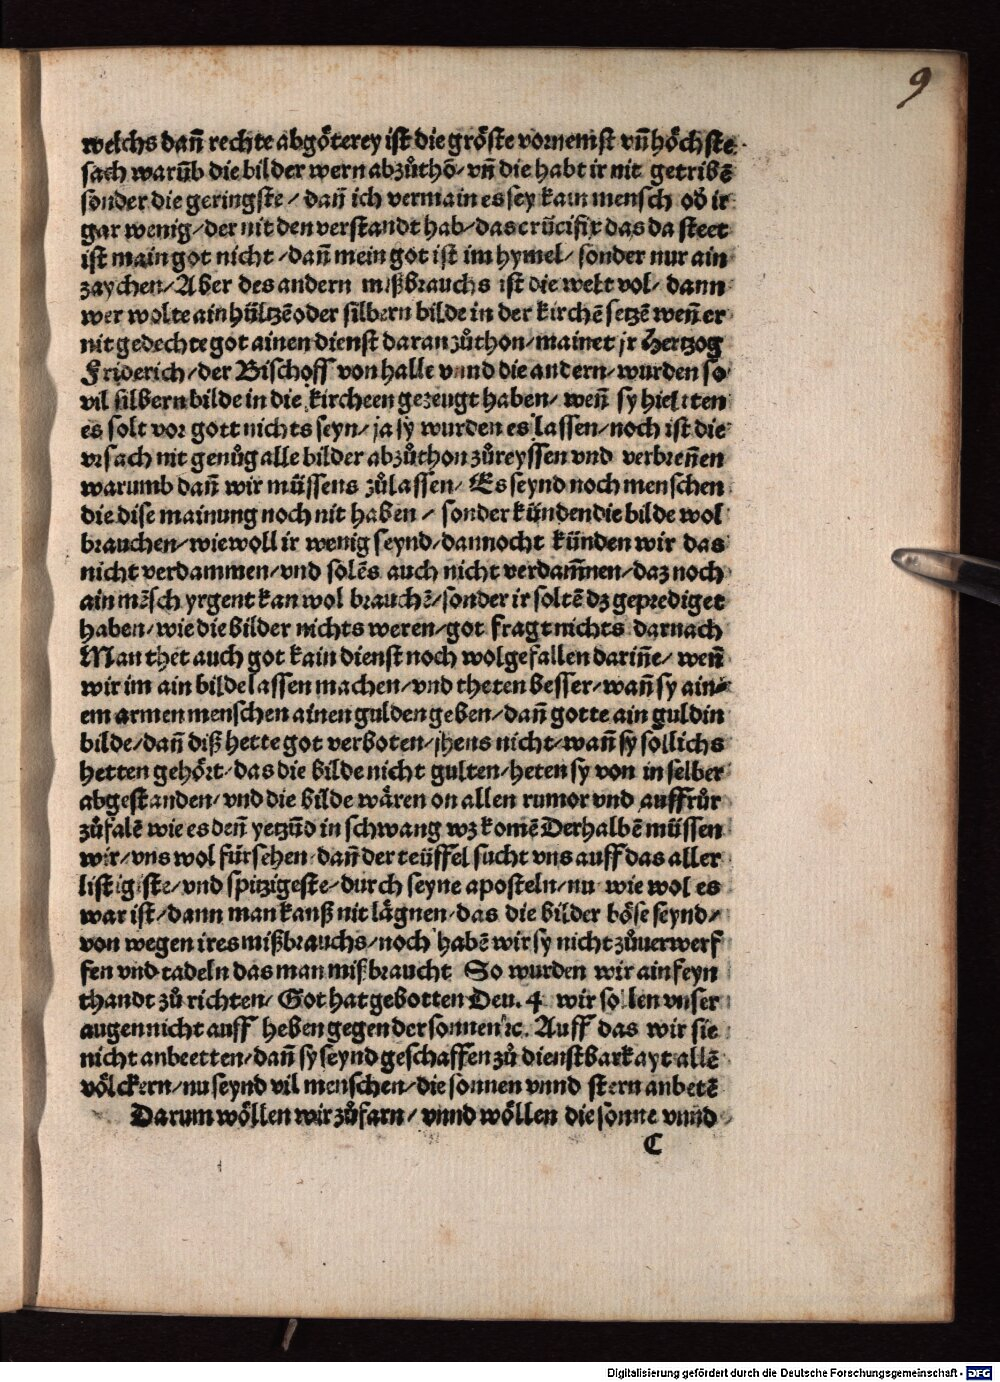 9
welchs dañ rechte abgöterey ist die gröste vornemst vñ höchste
sach warūb die bilder wern abzůthō/ vñ die habt ir nit getribē
sonder die geringste/ dañ ich vermain es sey kain mensch od̕ ir
gar wenig/ der nit den verstandt hab/ das crucifix das da steet
ist main got nicht/ dañ mein got ist im hymel/ sonder nur ain
zaychen/ Aber des andern mißbrauchs ist die welt vol/ dann
wer wolte ain hültzē oder silbern bilde in der kirchē setzē weñ er
nit gedechte got ainen dienst daran zůthon/ mainet jr Hertzog
Friderich/ der Bischoff von halle vnnd die andern/ wurden so
vil silbern bilde in die kircheen gezeugt haben/ weñ sy hielten
es solt vor gott nichts seyn/ ja sy wurden es lassen/ noch ist die
vrsach nit genůg alle bilder abzůthon zůreyssen vnd verbreñen
warumb dañ wir müssens zůlassen/ Es seynd noch menschen
die dise mainung noch nit haben/ sonder künden die bilde wol
brauchen/ wiewoll ir wenig seynd/ dannocht künden wir das
nicht verdammen/ vnd solēs auch nicht verdam̄nen/ daz noch
ain mēsch yrgent kan wol brauchē/ sonder ir soltē dz geprediget
haben/ wie die bilder nichts weren/ got fragt nichts darnach
Man thet auch got kain dienst noch wolgefallen dariñe/ weñ
wir im ain bilde lassen machen/ vnd theten besser/ wañ sy ain⸗
em armen menschen ainen gulden geben/ dañ gotte ain guldin
bilde/ dañ diß hette got verboten/ jhens nicht/ wañ sy sollichs
hetten gehört/ das die bilde nicht gulten/ heten sy von in selber
abgestanden/ vnd die bilde wären on allen rumor vnd auffrůr
zůfalē wie es deñ yetzūd in schwang wz komē Derhalbē müssen
wir/ vns wol fürsehen dañ der teüffel sucht vns auff das aller
listigiste/ vnd spitzigeste/ durch seyne aposteln/ nu wie wol es
war ist/ dann man kanß nit lägnen/ das die bilder böse seynd/
von wegen ires mißbrauchs/ noch habē wir sy nicht zůuerwerf
fen vnd tadeln das man mißbraucht So wurden wir ain feyn
thandt zů richten/ Got hat gebotten Deu. 4 wir sollen vnser
augen nicht auff heben gegen der sonnen ⁊c. Auff das wir sie
nicht anbeetten/ dañ sy seynd geschaffen zů dienstbarkayt allē
völckern/ nu seynd vil menschen/ die sonnen vnnd stern anbetē
Darum wöllen wir zůfarn/ vnnd wöllen die sonne vnnd
C
Digitalisierung gefördert durch die Deutsche Forschungsgemeinschaft - DFG